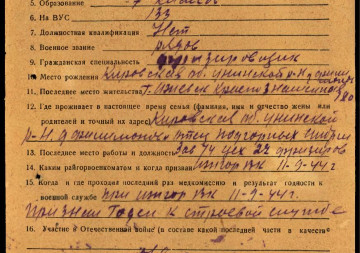 5. Образование 7 классов
6. На ВУС 133
7. Должностная квалификация Нет
8. Военное звание рядов
9. Гражданская специальность фрезировщик
10. Место рождения Кировская об. Унинской р-н д.
11. Последнее место жительства г. Ижевск Красно 180
12. Где проживает в настоящее время семья (фамилия, имя и отчество жены или
родителей и точный их адрес) Кировская об. Унинской
р-н д. отец
13. Последнее место работы и должность Зав 74 цех 22 фрезиров
14. Каким райгорвоенкоматом и когда призван Ижгор ВК 11-9-44 г.
15. Когда и где проходил последний раз медкомиссию и результат годности к
военной службе при Ижгор ВК 11-9-44 г.
признан Годен к строевой службе
16. Участие в Отечественной войне (в составе какой последней части в качестве